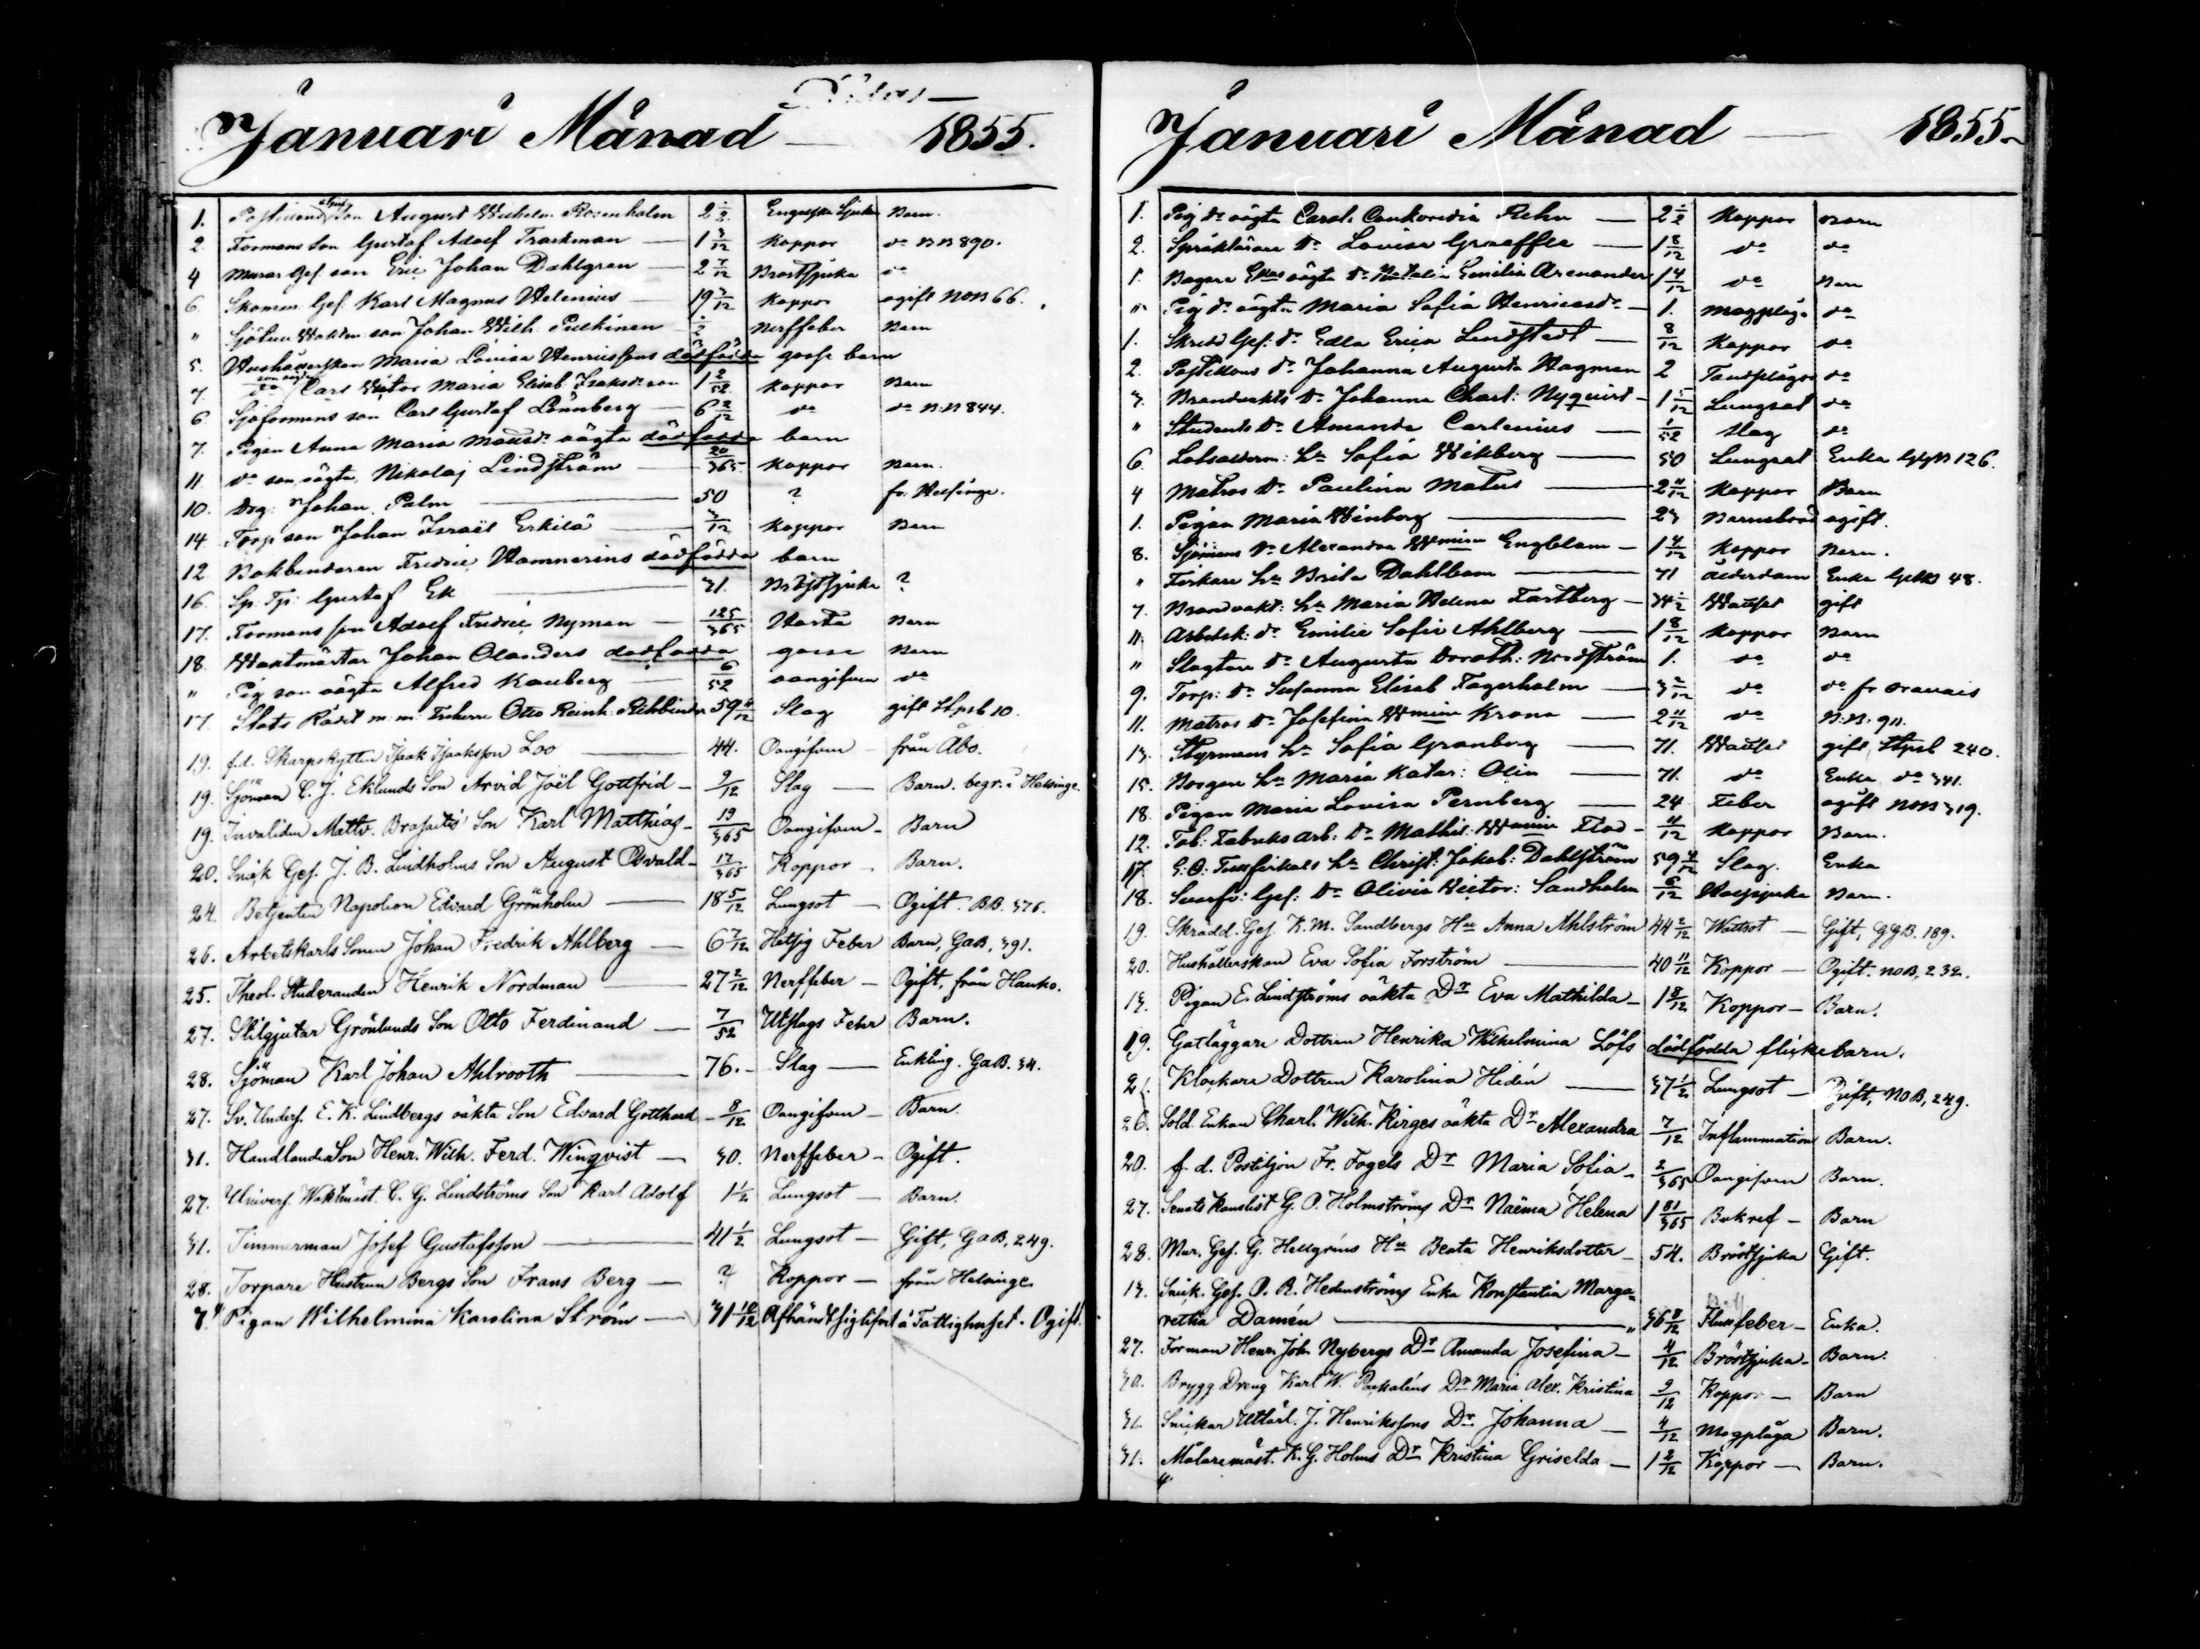 Januari Månad — 1855.
1. son August Wilhelm Rosenholm 2 1/2 Engelska Sjukan Barn.
2. Formans son Gustaf Adolf Trackman — 1 3/12 Koppor do BB 890.
4 Murar Gef. son Eric Johan Dahlgren — 2 7/12 Bröstsjuka do
6. Skomm. Gef. Karl Magnus Helenius — 19 7/12 Koppor ogift NOB 66.
" son Johan Wilh. Pulkinen — 1/2 Nerffeber Barn
5. Hushållerskan Maria Lovisa Henricssons dödfödda gosse barn
7. Carl Victor Maria Elisab. Isaksd. son 1 2/52 Koppor Barn
6. Sjöformans son Carl Gustaf Lönnberg — 6 2/12 do do B.B 844.
7. Pigan Anna Maria Mattsdr oägta dödfödda barn
11. do son oägta Nikolaj Lindström — 20/365 Koppor Barn.
10. Drg: Johan Palm — 50 ? fr. Helsinge.
14. Torp. son Johan Israël Erkilä — 3/12 Koppor Barn
12 Bokbinderen Fredric Hammerins dödfödda barn
16. Sp. Tj: Gustaf Ek — 31. Bröstsjuka ?
17. Formans son Adolf Fredric Nyman — 125/365 Hosta Barn
18. Waktmästar Johan Olanders dödfödda gosse Barn
" Pig son oägta Alfred Kauberg — 6/52 oangifven do
17. Stats Rådet m.m. Friherre Otto Reinh. Rehbinder 59 4/12 Slag gift Stpsb 10.
19. f.d. Skarpskytten Isaak Isaaksson Loo — 44. Oangifven — från Åbo.
19. Sjöman C. J. Eklunds Son Arvid Joël Gottfrid — 9/12 Slag — Barn. begr. i Helsinge.
19. Invaliden Matts. Brasaitis Son Karl Matthias — 19/365 Oangifven — Barn
20. Snick Gef. J. B. Lindholms Son August Osvald — 17/365 Koppor — Barn.
24. Betjenten Napoleon Edvard Grönholm — 18 5/12 Lungsot — Ogift. BB. 376.
26. Arbetskarls Sonen Johan Fredrik Ahlberg — 6 7/12 Hetsig Feber Barn, GaB, 391.
25. Theol. Studeranden Henrik Nordman — 27 2/12 Nerffeber — Ogift, från Hauho.
27. Stilgjutar Grönlunds Son Otto Ferdinand — 7/52 Utslags Feber Barn.
28. Sjöman Karl Johan Ahlrooth — 76. — Slag — Enkling. GaB. 34.
27. Sv. Underf. E. K. Lindbergs oäkta Son Edvard Gotthard — 8/12 Oangifven — Barn.
31. Handlande Son Henr. Wilh. Ferd. Winqvist — 30. Nerffeber — Ogift.
27. Univers. Waktmäst. C. G. Lindströms Son Karl Adolf 1 1/2 Lungsot — Barn.
31. Timmerman Josef Gustafsson — 41 1/2 Lungsot — Gift, GaB, 249.
28. Torpare Hustrun Bergs Son Frans Berg — ? Koppor — från Helsinge
7. Pigan Wilhelmina Karolina Ström — 31 10/12 Afhändt sig lifvet å Fattighuset. Ogift.
Januari Månad — 1855.
1. Pig dr oägta Carol. Conkordia Rehn — 2 1/2 Koppor Barn
2. Språklärare dr Lovisa Graeffle — 1 8/12 do do
1. Bagare Enkas oägta dr Natalia Emilia Arenander 1 4/12 do Barn
" Pig dr oägta Maria Sofia Henricsdr — 1. Magplåga do
1. Skredd Gef: dr Edla Erica Lindstedt — 8/12 Koppor do
2. Postillons dr Johanna Augusta Hagman 2 Tandplågor do
3. Brandvakts dr Johanna Charl: Nyqvist — 1 5/12 Lungsot do
" Students dr Amanda Carlenius — 1/52 Slag do
6. Lotsålderm: Hu Sofia Wikberg — 50 Lungsot Enka GgB 126.
4 Matros dr Paulina Matus — 2 11/12 Koppor Barn
1. Pigan Maria Winberg — 23 Barnsbörd ogift.
8. Sjömans dr Alexandra Wmina Engblom — 1 4/12 Koppor Barn.
" Fiskare Hu Brita Dahlbom — 71 ålderdom Enka GaB 48.
7. Brandvakt: Hu Maria Helena Fastberg — 34 1/2 Wattsot gift
11. Arbetsk: dr Emilie Sofie Ahlberg — 1 8/12 Koppor Barn
" Slagtare dr Augusta Doroth: Nordström 1. do do
9. Torp: dr Susanna Elisab Fagerholm — 3 2/12 do do fr Oravais
11. Matros dr Josefina Wmina Krona — 2 11/12 do B.B. 911.
13. Styrmans Hu Sofia Granberg — 71. Wattsot gift, Stpsb 240.
15. Borgare Hu Maria Katar: Olin — 71. do Enka do 341.
18. Pigan Maria Lovisa Pernberg — 24 Feber ogift NOB 319.
12. Tob: Fabriks arb: dr Mathil: Wmina Flod — 11/12 Koppor Barn.
17. Hu Christ: Jakob: Dahlström 59 4/12 Slag. Enka
18. Svarfv: Gef: dr Olivia Victor: Sandholm 6/12 Barn.
19. Skrädd. Gef. K. M. Sandbergs Hu Anna Ahlström 44 2/12 Wattsot — Gift, GgB. 189.
20. Hushållerskan Eva Sofia Forström — 40 11/12 Koppor — Ogift. NOB, 232.
13. Pigan E. Lindströms oäkta Dr Eva Mathilda — 1 8/12 Koppor — Barn.
19. Gatläggare Dottren Henrika Wilhelmina Löfs dödfödda flickebarn.
21. Klockare Dottren Karolina Hidén — 37 1/2 Lungsot — Ogift, NOB, 249.
26. Sold. Enkan Charl. Wilh. Kirges oäkta Dr Alexandra 7/12 Inflammation Barn.
20. f. d. Postiljon Fr. Fogels Dr Maria Sofia — 2/365 Oangifven Barn.
27. Senats Kanslist G. O. Holmströms Dr Naëma Helena 1 81/365 Bukref — Barn
28. Mur. Gef. G. Hellgrens Hu Beata Henriksdotter — 54. Bröstsjuka Gift.
13. Snick. Gef. O. R. Hedenströms Enka Konstantia Marga-
retha Damén — 36 8/12 Flussfeber — Enka.
27. Forman Henr. Joh. Nybergs Dr Amanda Josefina — 4/12 Bröstsjuka — Barn.
30. Brygg Dreng Karl W. Paskaléns Dr Maria Alex. Kristina 9/12 Koppor — Barn
31. Snickar Utlärl. J. Henrikssons Dr Johanna — 4/12 Magplåga Barn.
31. Målaremäst. K. G. Holms Dr Kristina Griselda — 1 2/12 Koppor — Barn.